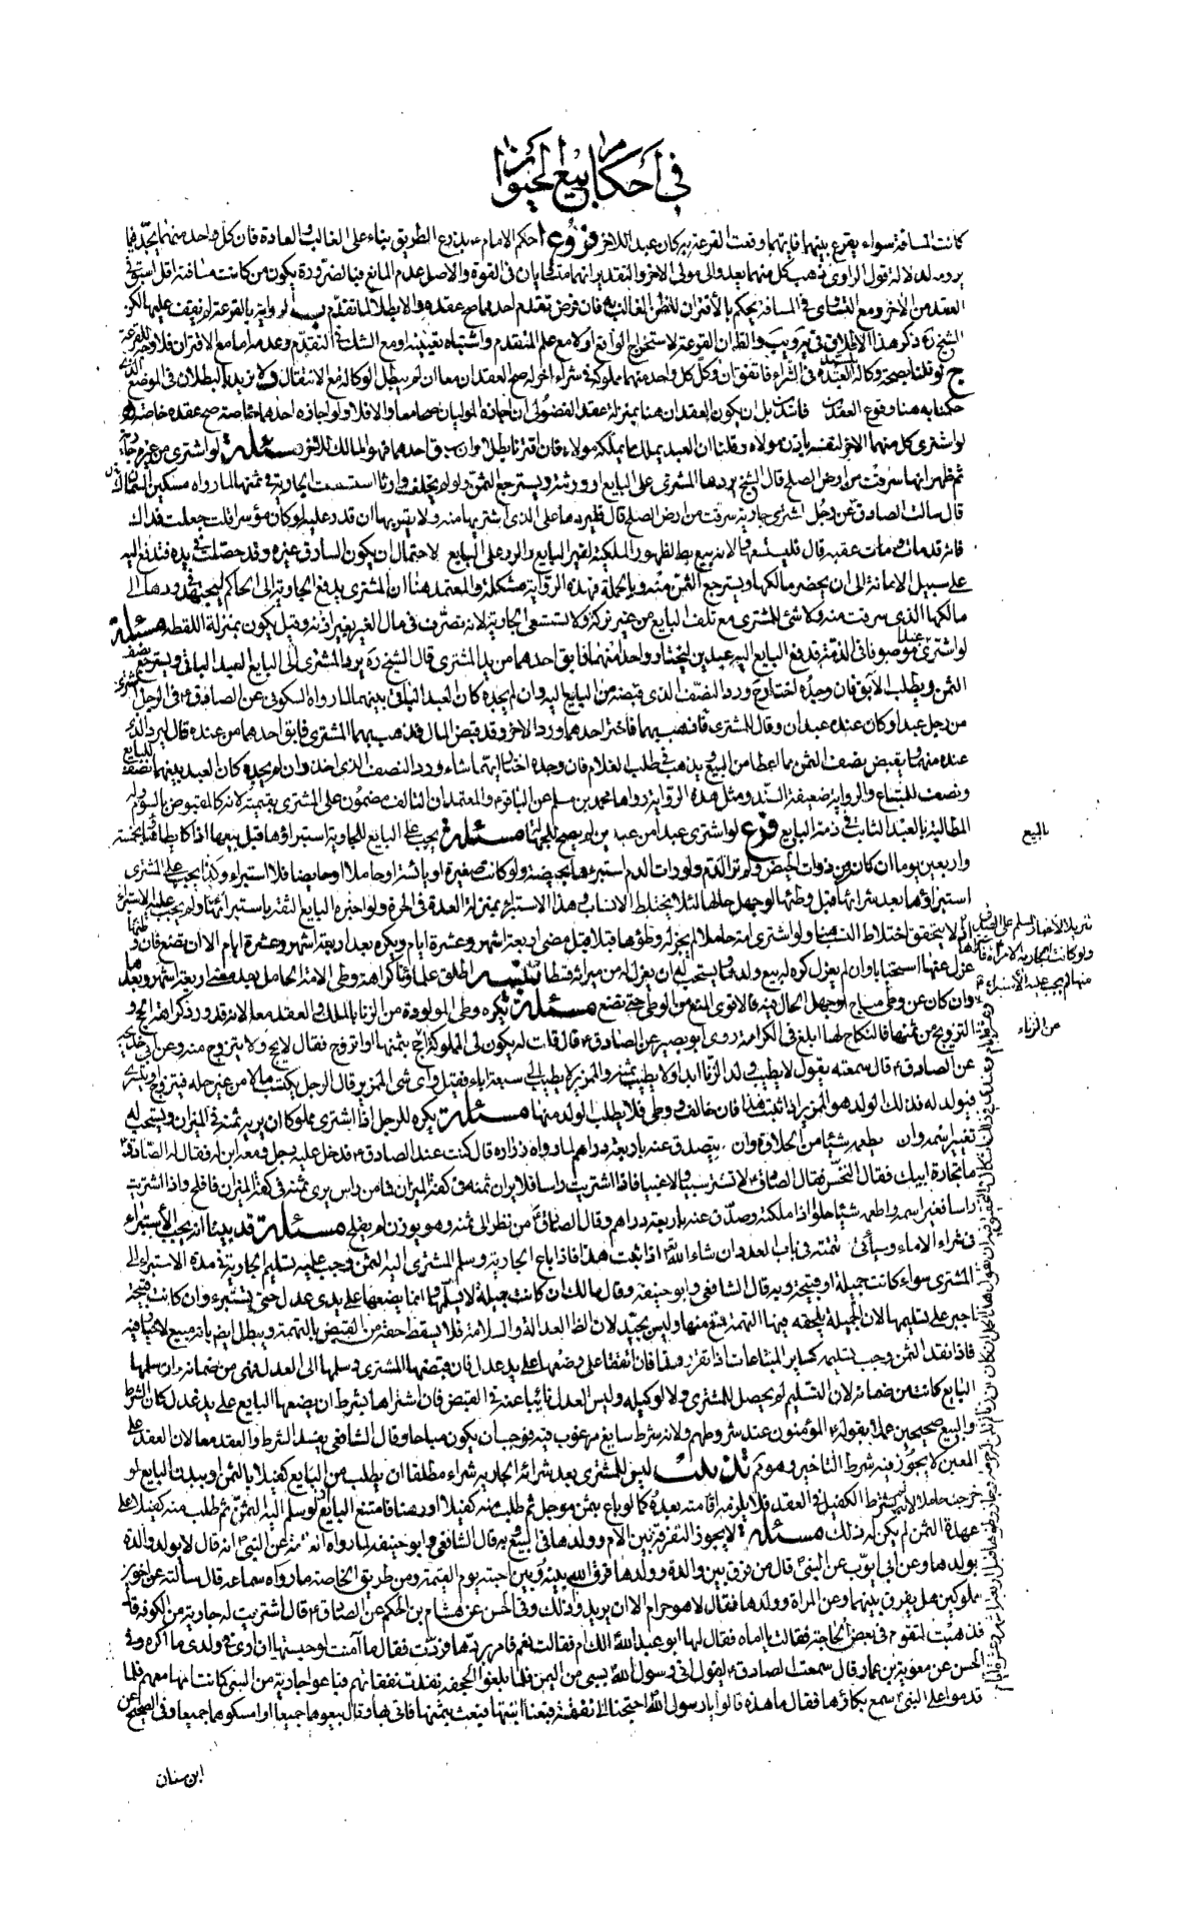 في أحكام بيع الحيوان
كانت المسافة سواء يقرع بينهما فأيهما وقعت القرعة به كان عبدا للآخر فروع ا حكم الإمام ع بذرع الطريق بناء على الغالب والعادة فإن كل واحد منهما يجد فيما
يرومه لدلالة قول الراوي ذهب كل منهما يعدو إلى مولى الآخر والتقدير أنهما متشابهان في القوة والأصل عدم المانع فبالضرورة يكون من كانت مسافته أقل أسبق في
العقد من الآخر ومع التساوي في المسافة يحكم بالاقتران للظن الغالب به فإن فرض تقدم أحدهما صح عقده وإلا بطلا لما تقدم ب الرواية بالقرعة لم نقف عليها لكن
الشيخ ره ذكر هذا الإطلاق في تهـ ويب والظ أن القرعة لاستخراج الواقع أولا مع علم المتقدم واشتباه تعيينه أو مع الشك في التقدم وعدمه أما مع الاقتران فلا وجه للقرعة
ج لو قلنا بصحة وكالة العبد في الشراء فاتفقا وكل كل واحد منهما مملوكه في شراء آخر له صح العقدان معا إن لم يبطل الوكالة مع الانتقال ولا نريد بالبطلان في الموضع الذي
حكمنا به هنا وقوع العقد فاسدا بل أن يكون العقدان هنا بمنزلة عقد الفضولي إن أجازه الموليان صحا معا وإلا فلا ولو أجازه أحدهما خاصة صح عقده خاصة
لو اشترى كل منهما الآخر لنفسه بإذن مولاه وقلنا إن العبد يملك ما يملكه مولاه فإن اقترنا بطلا وإن سبق أحدهما فهو المالك للآخر مسئلة لو اشترى من غيره جارية
ثم ظهر أنها سرقت من أرض الصلح قال الشيخ يردها المشتري على البايع أو ورثته ويسترجع الثمن ولو لم يخلف وارثا استسعت الجارية في ثمنها لما رواه مسكين السمان
قال سألت الصادق ع عن رجل اشترى جارية سرقت من أرض الصلح قال فليردها على الذي اشتراها منه ولا يقربها إن قدر عليه أو كان موسرا قلت جعلت فداك
فإنه قد مات ومات عقبه قال فليستسعها ولأنه بيع بط لظهور الملكية لغير البايع والرد على البايع لاحتمال أن يكون السارق غيره وقد حصلت في يده فتدفع إليه
على سبيل الأمانة إلى أن يحضر مالكها ويسترجع الثمن منه وبالجملة فهذه الرواية مشكلة والمعتمد هنا أن المشتري يدفع الجارية إلى الحاكم ليجتهد في ردها إلى
مالكها الذي سرقت منه ولا شئ للمشتري مع تلف البايع من غير تركة ولا تستسعى الجارية لأنه تصرف في مال الغير بغير إذنه وقيل يكون بمنزلة اللقطة مسئلة
لو اشترى عبدا موصوفا في الذمة فدفع البايع إليه عبدين ليختار واحدا منهما فأبق أحدهما من يد المشتري قال الشيخ ره يرد المشتري إلى البايع العبد الباقي ويسترجع نصف
الثمن ويطلب الآبق فإن وجده اختار ح ورد النصف الذي قبضه من البايع إليه وإن لم يجده كان العبد الباقي بينهما لما رواه السكوني عن الصادق ع في الرجل اشترى
من رجل عبدا وكان عنده عبدان وقال للمشتري فاذهب بهما فاختر أحدهما ورد الآخر وقد قبض المال فذهب بهما المشتري فأبق أحدهما من عنده قال ليرد الذي
عنده منهما ويقبض نصف الثمن مما أعطا من البيع ويذهب في طلب الغلام فإن وجده اختار أيهما شاء ورد النصف الذي أخذ وإن لم يجده كان العبد بينهما نصف للبايع
ونصف للمبتاع والرواية ضعيفة السند ومثل هذه الرواية رواها محمد بن مسلم عن الباقر ع والمعتمد أن التالف مضمون على المشتري بقيمته لأنه كالمقبوض بالسوم وله
المطالبة بالعبد الثابت في ذمة البايع فرع لو اشترى عبدا من عبدين لم يصح للجهالة مسئلة يجب على البايع للجارية استبراؤها قبل بيعها إذا كان يطأها بحيضة
بالبيع
وأربعين يوما إن كان من ذوات الحيض ولم تر الدم ولو رأت الدم استبرأها بحيضة ولو كانت صغيرة أو يائسة أو حاملا أو حايضا فلا استبراء وكذا يجب على المشتري
استبراؤها بعد شرائها قبل وطئها لو جهل حالها لئلا يختلط الأنساب وهذا الاستبراء بمنزلة العدة في الحرة ولو أخبره البايع الثقة باستبرائها
لا يتحقق اختلاط النسب هنا ولو اشترى أمة حاملا لم يجز له وطؤها قبلا قبل مضي أربعة أشهر وعشرة أيام ويكره بعد أربعة أشهر وعشرة أيام إلا أن تضع فإن وطئها
عزل عنها استحبابا وإن لم يعزل كره له بيع ولدها ويستحب له أن يعزل له من ميراثه قسطا تنبيه أطلق علماؤنا كراهة وطي الأمة الحامل بعد مضي أربعة أشهر
وإن كان عن وطي مباح أو جهل الحال فيه فالأقوى المنع من الوطي حتى تضع مسئلة يكره وطي المولودة من الزنا بالملك والعقد معا لأنه قد ورد كراهة الحج و
من الزناء
التزويج من ثمنها فالنكاح لها أبلغ في الكراهة روى أبو بصير عن الصادق ع قال قلت له يكون لي المملوكة أحج بثمنها أو أتزوج فقال لا يحج ولا يتزوج منه وعن أبي خديجة
عن الصادق ع قال سمعته يقول لا يطيب ولد الزنا أبدا ولا يطيب ثمنه والممزير لا يطيب إلى سبعة آباء فقيل وأي شئ الممزير قال الرجل يكتسب مالا من غير حله فيتزوج أو يتسرى
فيولد له فذلك الولد هو الممزير إذا ثبت هذا فإن خالف ووطي فلا يطلب الولد منها مسئلة يكره للرجل إذا اشترى مملوكا أن يريه ثمنه في الميزان ويستحب له
تغيير اسمه وأن يطعمه شيئا من الحلاوة وأن يتصدق عنه بأربعة دراهم لما رواه زرارة قال كنت عند الصادق ع فدخل عليه رجل ومعه ابن له فقال له الصادق ع
ما تجارة ابنك فقال النخس فقال الصادق ع لا تشتر سبيا ولا غبيا فإذا اشتريت رأسا فلا يرين ثمنه في كفة الميزان فما من رأس يرى ثمنه في كفة الميزان فأفلح وإذا اشتريت
رأسا فغير اسمه وأطعمه شيئا حلوا إذا ملكته وصدق عنه بأربعة دراهم وقال الصادق ع من نظر إلى ثمنه وهو يوزن لم يفلح مسئلة قد بينا أنه يجب الاستبراء
في شراء الإماء وسيأتي تتمته في باب العدد إن شاء الله إذا ثبت هذا فإذا باع الجارية وسلم المشتري إليه الثمن وجب عليه تسليم الجارية في مدة الاستبراء إلى
المشتري سواء كانت جميلة أو قبيحة وبه قال الشافعي وأبو حنيفة وقال مالك إن كانت جميلة لا يسلمها وإنما يضعها على يدي عدل حتى يستبرء وإن كانت قبيحة
أجبر على تسليمها لأن الجميلة يلحقه فيها التهمة فمنع منها وليس بجيد لأن الظ العدالة والسلامة فلا يسقط حقه من القبض بالتهمة ويبطل أيض بأنه مبيع لا خيار فيه
فإذا نقد الثمن وجب تسليمه كسائر المبتاعات إذا تقرر هذا فإن اتفقا على وضعها على يد عدل فإن قبضها المشتري وسلمها إلى العدل فهي من ضمانه وإن سلمها
البايع كانت من ضمانه لأن التسليم لم يحصل للمشتري ولا لوكيله وليس العدل نائبا عنه في القبض فإن اشتراها بشرط أن يضعها البايع على يد عدل كان الشرط
والبيع صحيحين عملا بقوله ع المؤمنون عند شروطهم ولأنه شرط سايغ مرغوب فيه فوجب أن يكون مباحا وقال الشافعي يفسد الشرط والعقد معا لأن العقد على
المعين لا يجوز فيه شرط التأخير وهو مم تذنيب ليس للمشتري بعد شرائه الجارية شراء مطلقا أن يطلب من البايع كفيلا بالثمن
خرجت حاملا لأنه لم يشترط الكفيل في العقد فلا يلزمه إقامته بعده كما لو باع بثمن موجل ثم طلب منه كفيلا أو رهنا فامتنع البايع ولو سلم إليه الثمن ثم طلب منه كفيلا على
عهدة الثمن لم يكن له ذلك مسئلة لا يجوز التفرقة بين الأم وولدها في البيع وبه قال الشافعي وأبو حنيفة لما رواه العامة عن النبي ص أنه قال لا يوله والدة
بولدها وعن أبي أيوب عن النبي ص قال من فرق بين والدة وولدها فرق الله بينه وبين أحبته يوم القيمة ومن طريق الخاصة ما رواه سماعة قال سألته عن أخوين
مملوكين هل يفرق بينهما وعن المرأة وولدها فقال لا هو حرام إلا أن يريدوا ذلك وفي الحسن عن هشام بن الحكم عن الصادق ع قال اشتريت له جارية من الكوفة قال
فذهبت لتقوم في بعض الحاجة فقالت يا أماه فقال لها أبو عبد الله ع ألك أم قالت نعم فأمر بها فردت فقال ما آمنت لو حبستها أن أرى في ولدي ما أكره وفي
الحسن عن معوية بن عمار قال سمعت الصادق ع يقول أتي رسول الله ص بسبي من اليمن فلما بلغوا الجحفة نفدت نفقاتهم فباعوا جارية من السبي كانت أمها معهم فلما
قدموا على النبي ص سمع بكاؤها فقال ما هذه قالوا يا رسول الله احتجنا إلى نفقة فبعنا ابنتها فبعث بثمنها فأتي بها وقال بيعوهما جميعا أو امسكوهما جميعا وفي الصحيح عن
ابن سنان